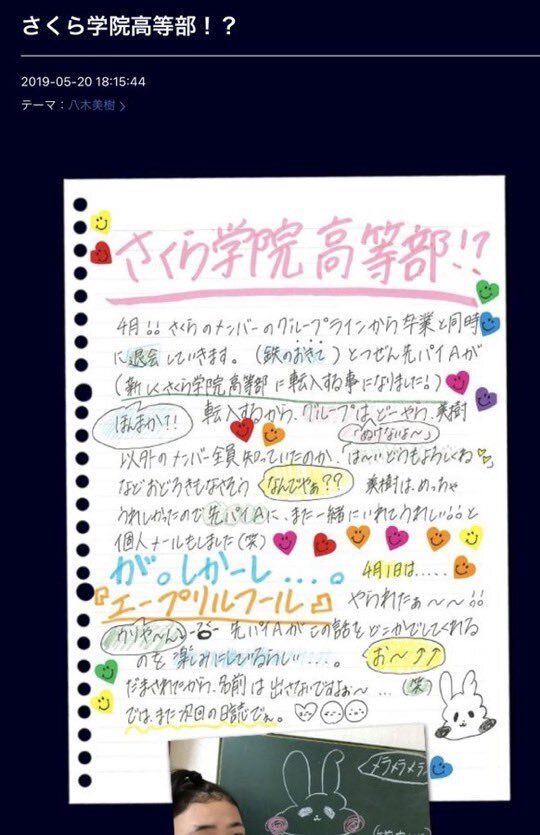 さくら学院高等部！？
2019-05-20 18:15:44
テーマ：八木美樹
さくら学院高等部!?
4月!! さくらのメンバーのグループラインから卒業と同時
に退会していきます。(鉄のおきて) とつぜん先パイAが
(新しくさくら学院高等部に転入する事になりました!)
ほんまかて!
転入するから、グループは、
「ぬけないよ〜」
どーやら、美樹
以外のメンバー全員知っていたのか、「は〜いどうもよろしくね
などおどろきもなさそう
なんでやぁ??
美樹は、めっちゃ
うれしかったので先パイAに、また一緒にいれてうれしい!!と
個人メールもしました(笑)
が。しかーし...。
4月1日は.....
『エープリルフール』
やられたぁ〜〜!!
ウソや〜ん
先パイAがこの話をどこかでしてくれる
のを楽しみにしているらしい...。
お〜↑↑
だまされたから、名前は出さないですよぉ〜...(笑)
では、また次回の日誌でぇ。
メラメラメラ